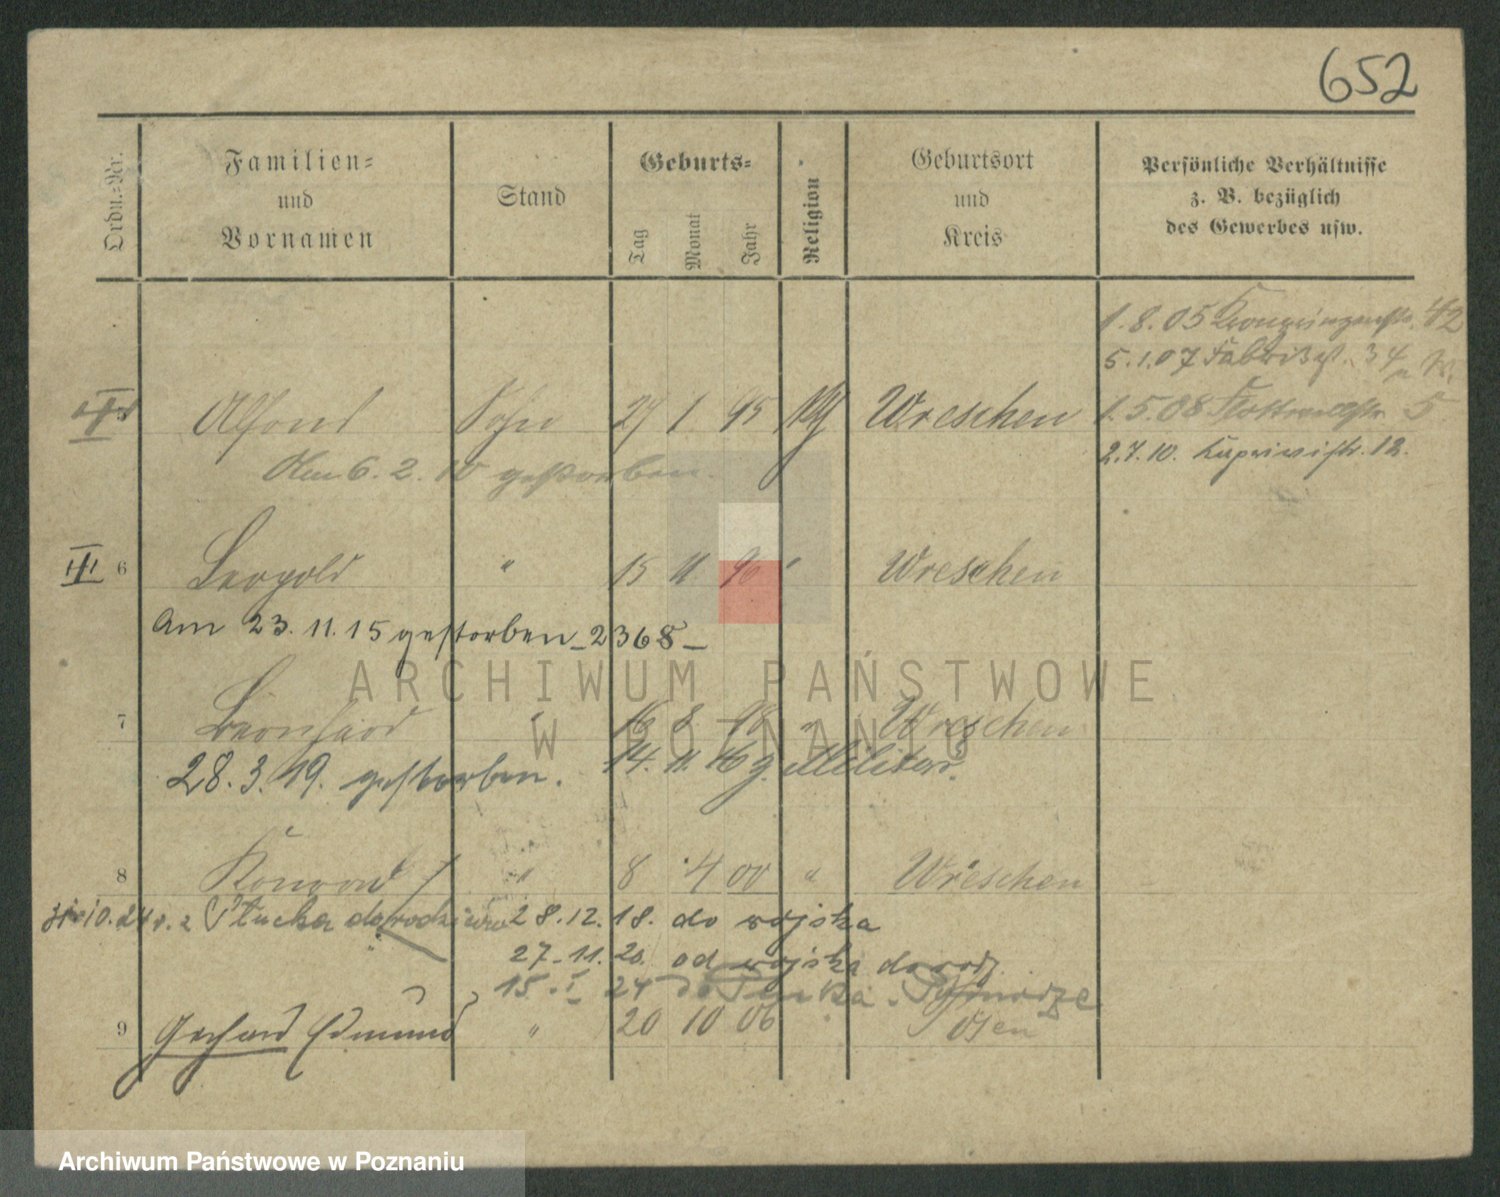 652
Ordn.-Nr.
Familien-
und
Vornamen
Stand
Geburts-
Tag
Monat
Jahr
Religion
Geburtsort
und
Kreis
Persönliche Verhältnisse
z. B. bezüglich
des Gewerbes usw.
1.8.05 Kronprinzenstr. 42
5.1.07 Fabrikst. 34
Alfons Sohn 29 1 95 Wreschen 1.5.08 5
Am 6. 2. 10 gestorben. 2.7.10. Caprivistr. 12.
III 6 Leopold " 15 11 96 " Wreschen
Am 23. 11. 15 gestorben - 2368 -
ARCHIWUM PAŃSTWOWE
W POZNANIU
7 Leonhard " 16 8 98 " Wreschen
28. 3. 19. gestorben. 14. 11. 16 z. Militär.
8 Konrad " 8 4 00 " Wreschen
10.24 do rodziców 28.12.18. do wojska
27.11.20. od wojska do rodz.
15.I 24 do
9 Gerhard Edmund " 20 10 06 Posen
Archiwum Państwowe w Poznaniu